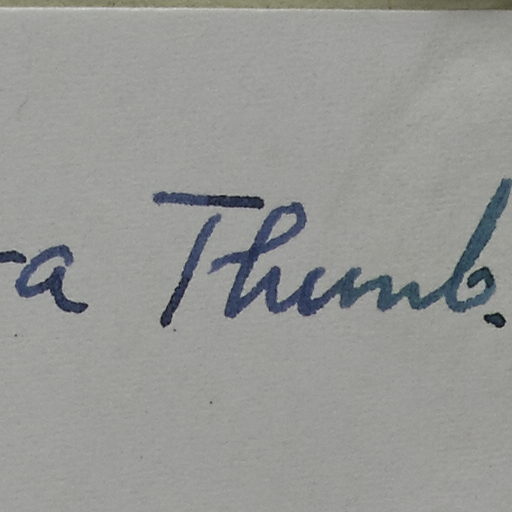 -a Thumb.